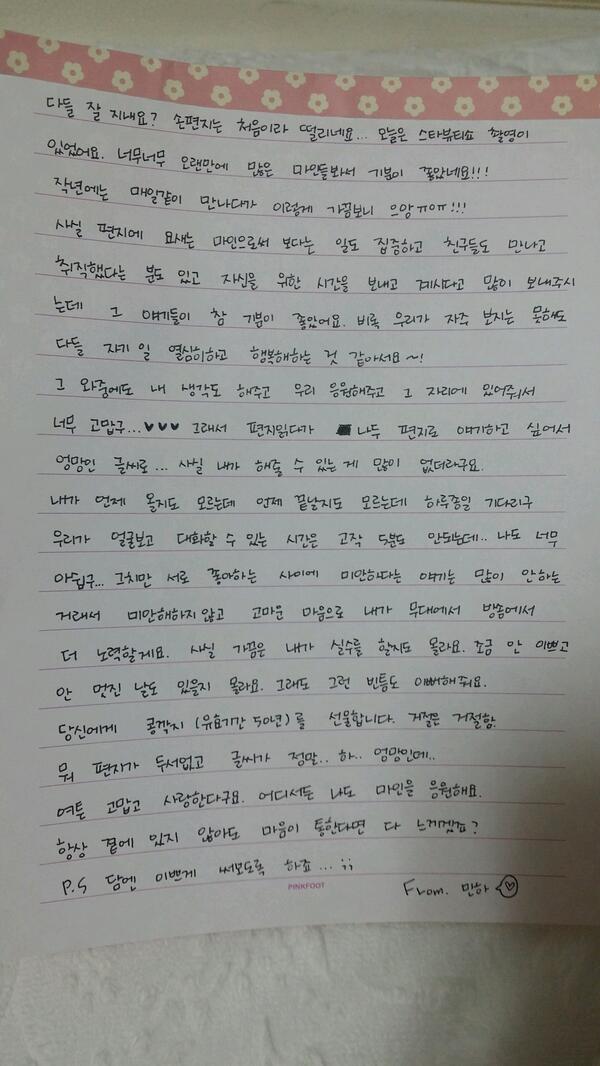 다들 잘 지내요? 손편지는 처음이라 떨리네요... 오늘은 스타뷰티쇼 촬영이
있었어요. 너무너무 오랜만에 많은 마인들봐서 기분이 좋았네요!!!
작년에는 매일같이 만나다가 이렇게 가끔보니 으앙ㅠㅇㅠ!!!
사실 편지에 요새는 마인으로써 보다는 일도 집중하고 친구들도 만나고
취직했다는 분도 있고 자신을 위한 시간을 보내고 계시다고 많이 보내주시
는데 그 얘기들이 참 기분이 좋았어요. 비록 우리가 자주 보지는 못해도
다들 자기 일 열심히하고 행복해하는 것 같아서요~!
그 와중에도 내 생각도 해주고 우리 응원해주고 그 자리에 있어줘서
너무 고맙구...♥♥♥ 그래서 편지읽다가 나두 편지로 얘기하고 싶어서
엉망인 글씨로... 사실 내가 해줄 수 있는 게 많이 없더라구요.
내가 언제 올지도 모르는데 언제 끝날지도 모르는데 하루종일 기다리구
우리가 얼굴보고 대화할 수 있는 시간은 고작 5분도 안되는데.. 나도 너무
아쉽구... 그치만 서로 좋아하는 사이에 미안하다는 얘기는 많이 안하는
거래서 미안해하지않고 고마운 마음으로 내가 무대에서 방송에서
더 노력할게요. 사실 가끔은 내가 실수를 할지도 몰라요. 조금 안 이쁘고
안 멋진 날도 있을지 몰라요. 그래도 그런 빈틈도 이뻐해줘요.
당신에게 콩깍지 (유효기간 50년)를 선물합니다. 거절은 거절함.
뭐 편지가 두서없고 글씨가 정말.. 하.. 엉망인데..
여튼 고맙고 사랑한다구요. 어디서든 나도 마인을 응원해요.
항상 곁에 있지 않아도 마음이 통한다면 다 느끼겠죠?
P.S 담엔 이쁘게 써보도록 하죠...;;
From. 민하♡
PINKFOOT